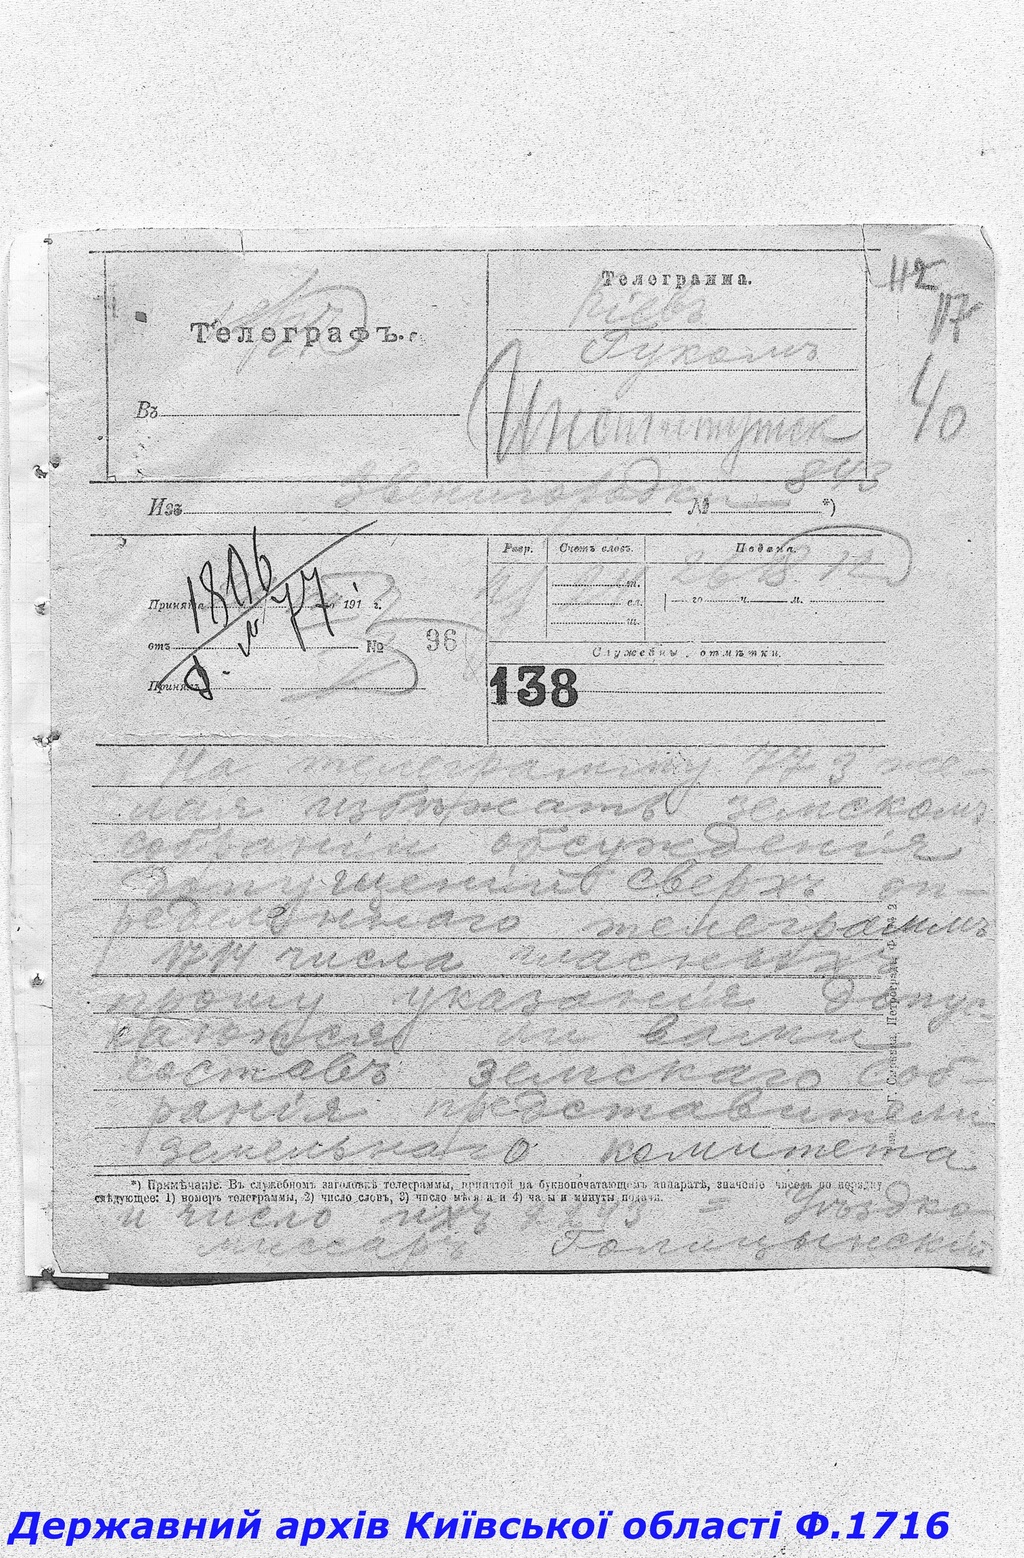 Телеграмма.
Кіевъ
Телеграфъ.
Губкомъ
Въ
Институтск
112
117
40
Изъ Звенигородки № 843 *)
Разр.
Счетъ словъ.
Подана.
т.
сл.
ш.
го ч. м.
26 18 12
1806
77
Принята 191 г.
отъ № 96
Принялъ
Служебны отмѣтки.
138
На телеграмму 773 же-
лая избѣжать земскомъ
собраніи обсужденія
допущеніи сверхъ оп-
ределеннаго телеграммъ
1714 числа гласныхъ
прошу указанія допу-
каются ли вами
составъ земскаго соб-
ранія представители
земельнаго комитета
*) Примѣчаніе. Въ служебномъ заголовкѣ телеграммы, принятой на буквопечатающемъ аппаратѣ, значеніе чиселъ по порядку
слѣдующее: 1) номеръ телеграммы, 2) число словъ, 3) число мѣсяца и 4) часы и минуты подачи.
и число ихъ 2243 = Уѣздко-
миссаръ Голицынскій
Державний архів Київської області Ф.1716